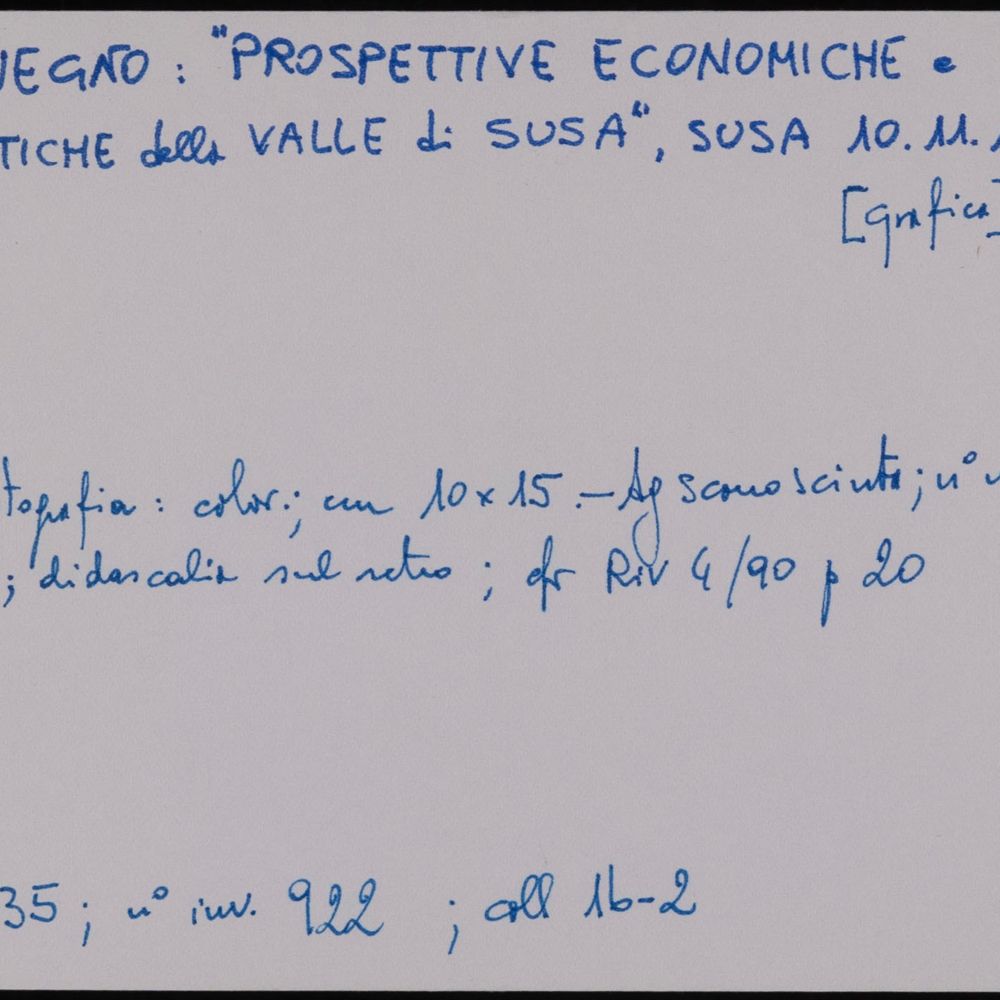 VEGNO: "PROSPETTIVE ECONOMICHE e
TICHE della VALLE di SUSA", SUSA 10.11.
[grafica]
tografia: color.; cm 10x15.- Ag sconosciuta; n°
; didascalia sul retro; cfr Riv 4/90 p 20
35; n° inv. 922 ; coll 1b-2